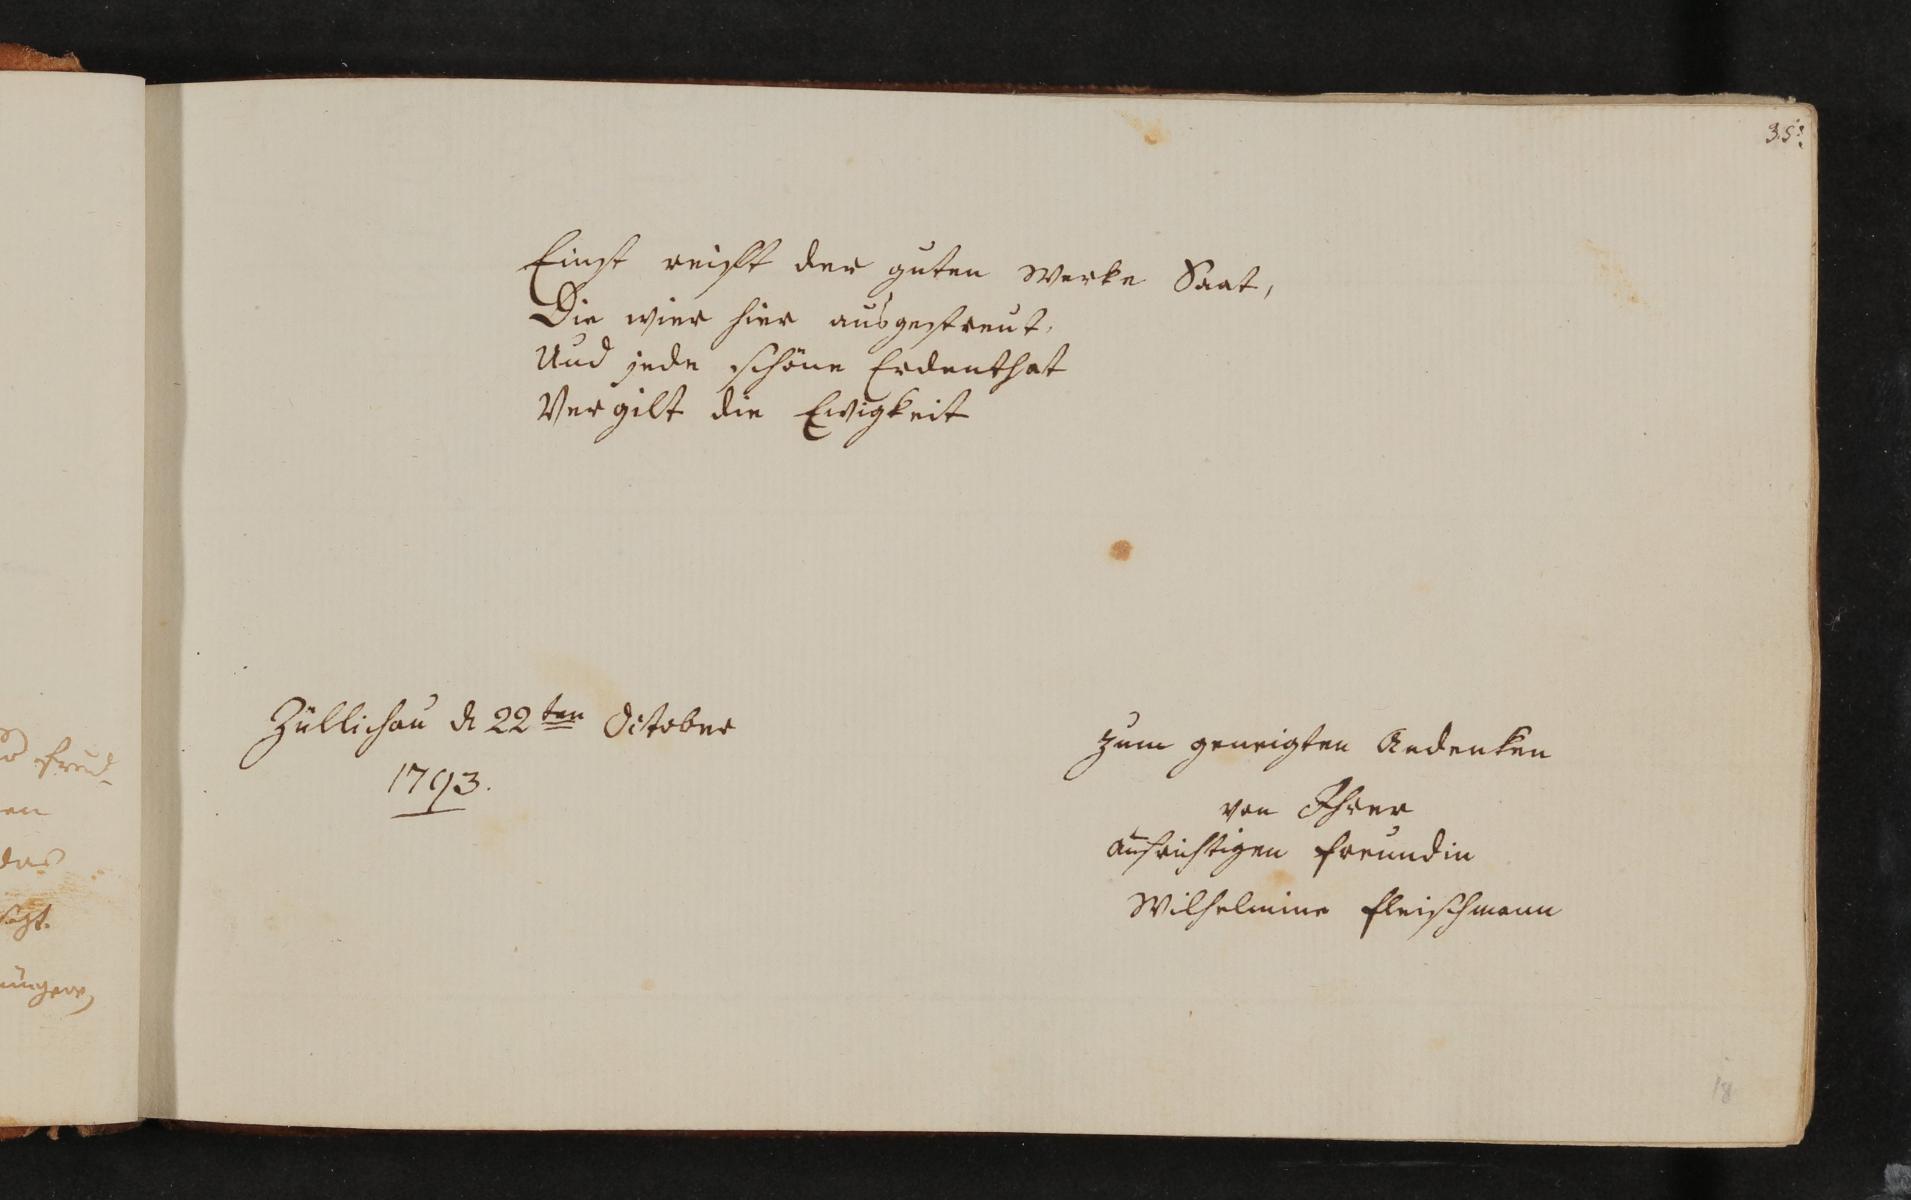 35.
Einst reift der guten Werke Saat,
Die wier hier ausgestreut.
Und jede schöne Erdenthat
Vergilt die Ewigkeit
Züllichau d 22ten October
1793.
zum geneigten Andenken
von Ihrer
aufrichtigen Freundin
Wilhelmine Fleischmann
18
en
das